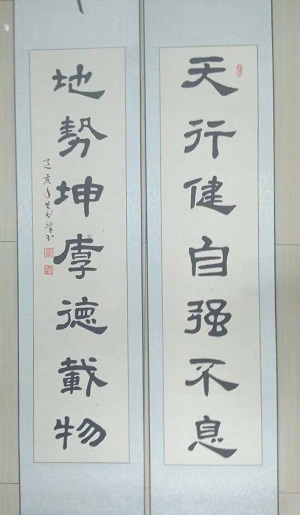 天行健自强不息
地勢坤厚德載物